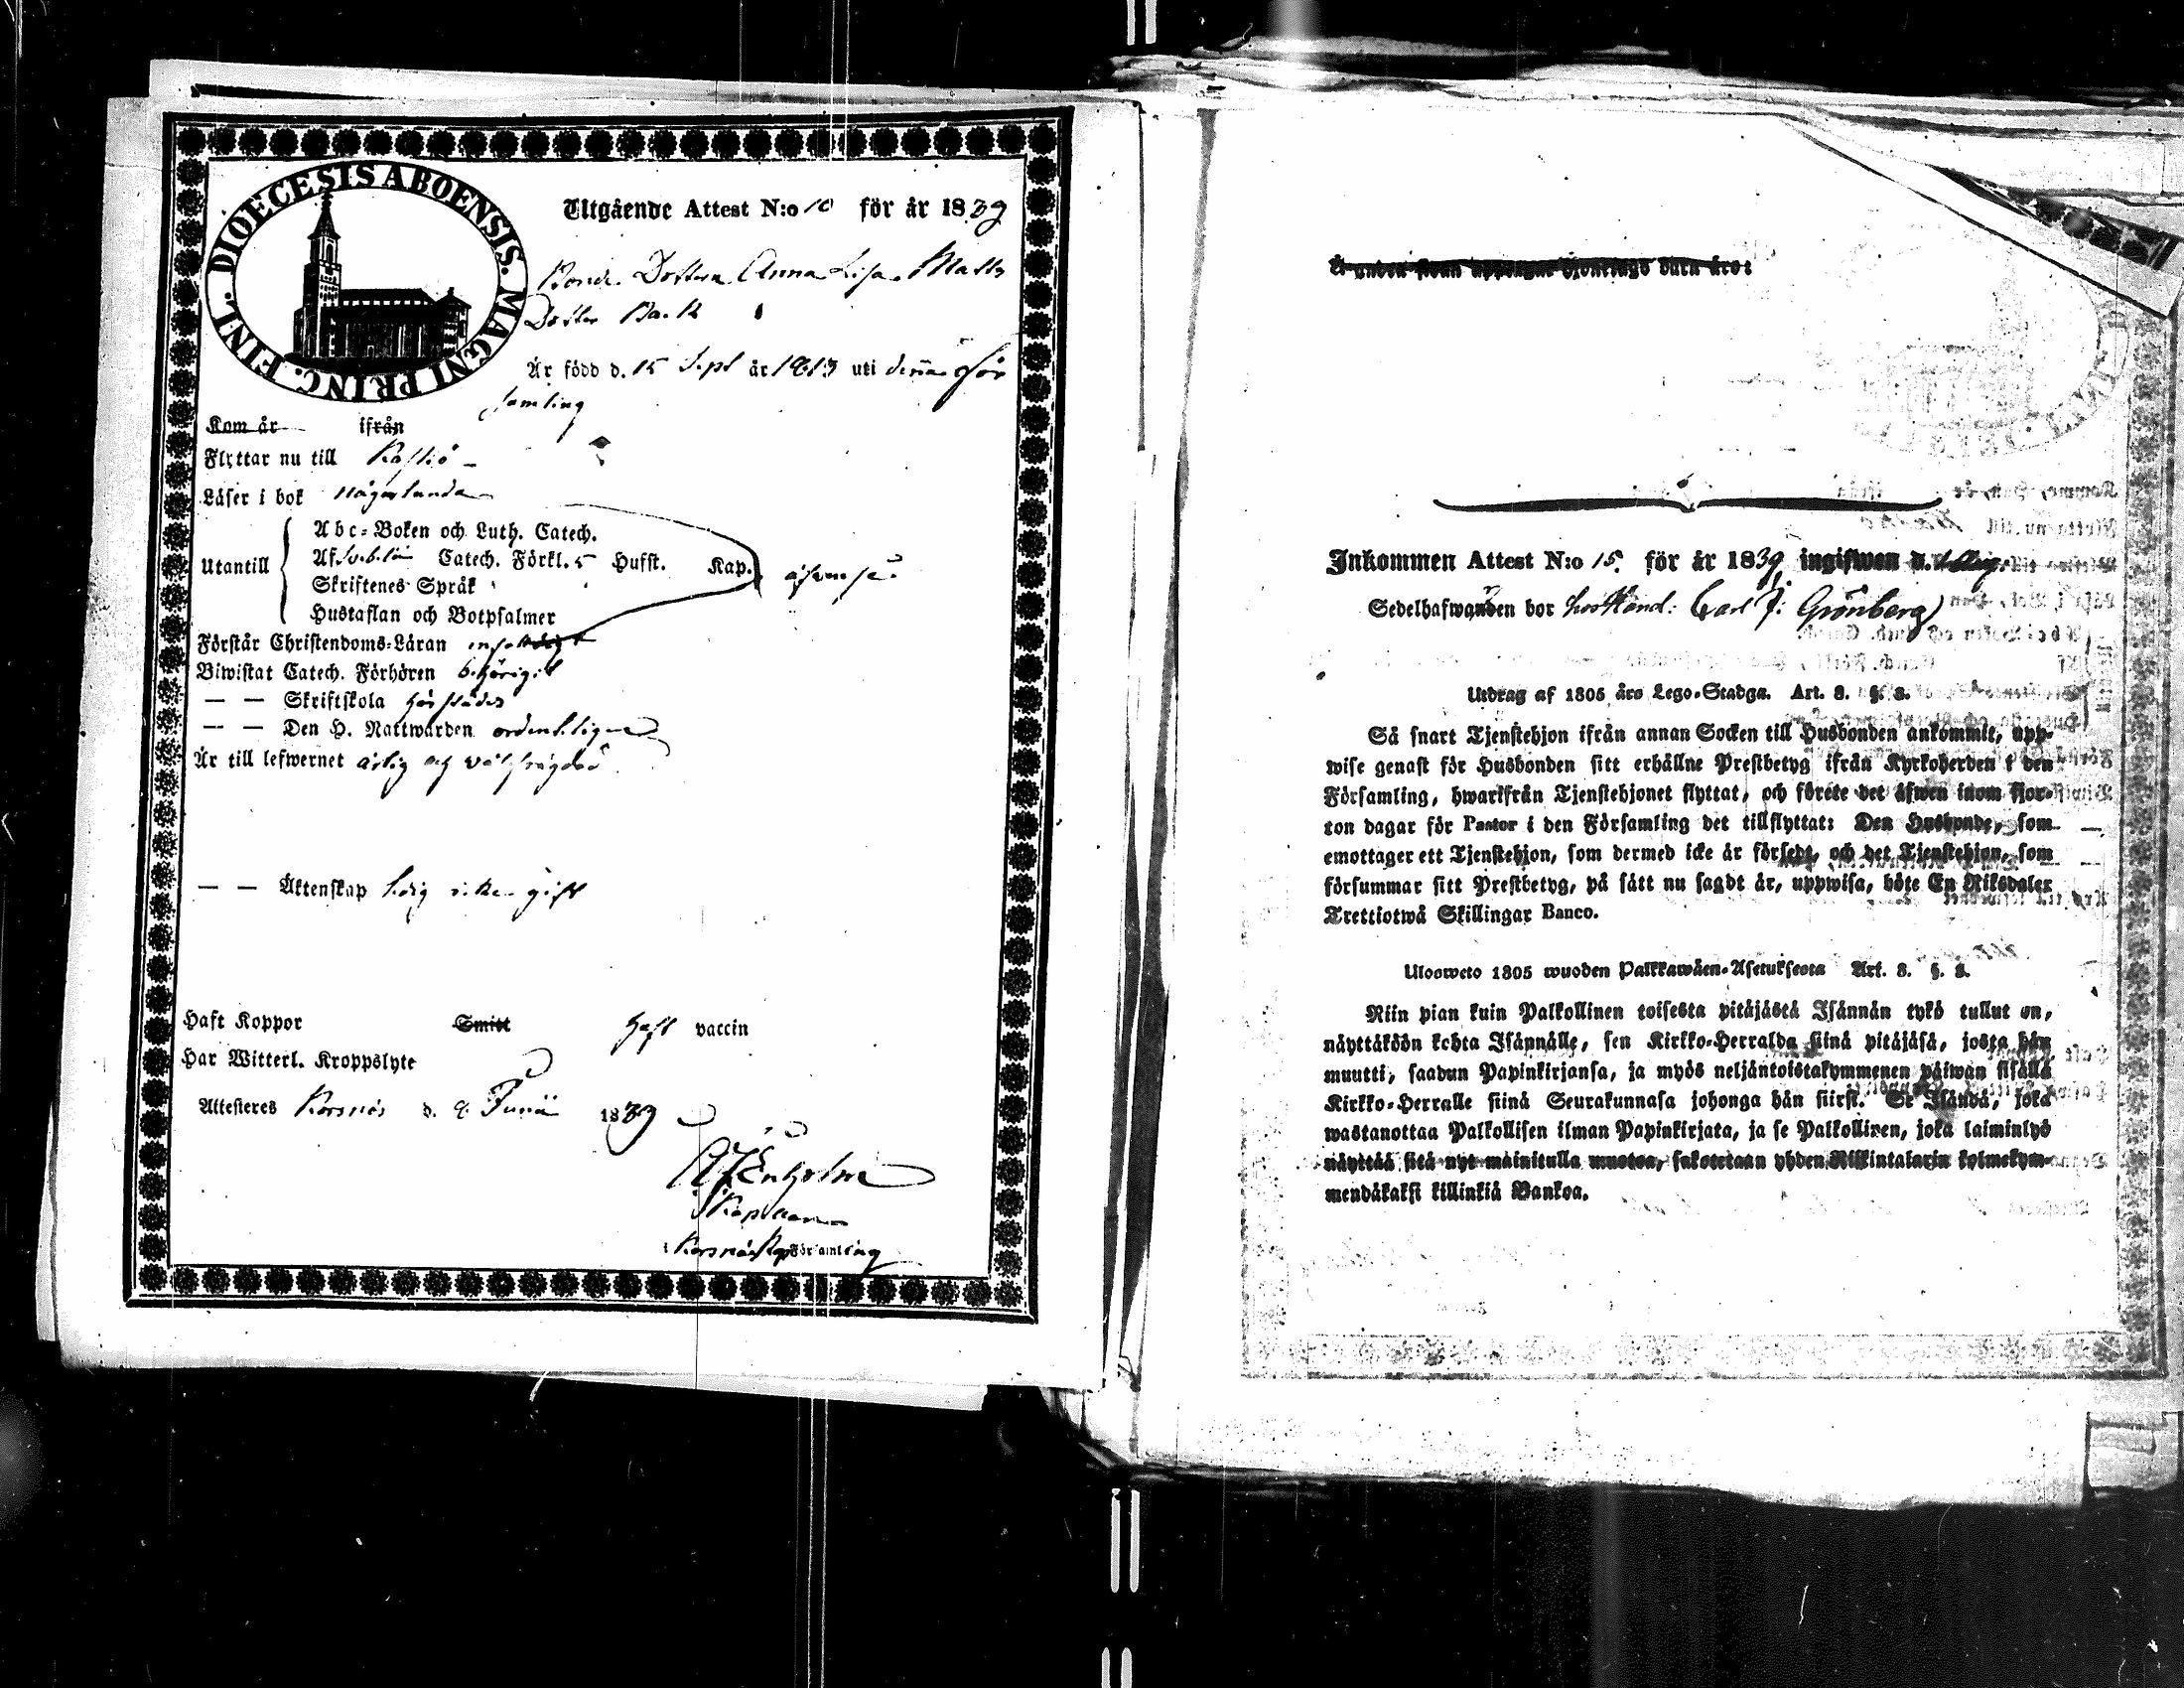 DIOECESIS ABOENSIS. MAGNI PRINC. FINL.
Utgående Attest N:o 10 för år 1839
Bonde Dottern Anna Lisa Matts
Dotter Back
Är född d. 15 Sept år 1813 uti denna För
samling
Kom år ifrån
Flyttar nu till Kaskö
Läser i bok någorlunda
Utantill
Abc-Boken och Luth. Catech.
Af Svebelii Catech. Förkl. 5 Hufst. Kap.
Skriftenes Språk
Hustaflan och Botpsalmer
äfven så.
Förstår Christendoms-Läran
Biwistat Catech. Förhören behörigt
— — Skriftskola härstädes
— — Den H. Nattwarden ordenteligen
Är till lefwernet ärlig och välfrägdad
— — Äktenskap ledig icke gift
Haft Koppor Smitt haft vaccin
Har Witterl. Kroppslyte
Attesteres Korsnäs d. 9 Junii 1839
Enholm
Kaplan
i Korsnäs Kap Församling
Inkommen Attest N:o 15. för år 1839 ingifwen d. 1 Aug.
Sedelhafwanden bor hos Hand: Carl J: Grönberg
Utdrag af 1805 års Lego-Stadga. Art. 8. §. 8.
Så snart Tjenstehjon ifrån annan Socken till Husbonden ankommit, upp-
wise genast för Husbonden sitt erhållne Prestbetyg ifrån Kyrkoherden i den
Församling, hwarifrån Tjenstehjonet flyttat, och förete det äfwen inom fjor-
ton dagar för Pastor i den Församling det tillflyttat: Den Husbonde, som
emottager ett Tjenstehjon, som dermed icke är försedt, och det Tjenstehjon, som
försummar sitt Prestbetyg, på sätt nu sagdt är, uppwisa, böte En Riksdaler
Trettiotwå Skillingar Banco.
Ulosweto 1805 wuoden Palkkawäen-Asetuksesta Art. 8. §. 8.
Niin pian kuin Palkollinen toisesta pitäjästä Isännän tykö tullut on,
näyttäköön kohta Isännälle, sen Kirkko-Herralda siinä pitäjäsä, josta hän
muutti, saadun Papinkirjansa, ja myös neljäntoistakymmenen päiwän sisällä
Kirkko-Herralle siinä Seurakunnasa johonga hän siirsi. Se Isändä, joka
wastanottaa Palkollisen ilman Papinkirjata, ja se Palkollinen, joka laiminlyö
näyttää sitä nyt mainitulla muotoa, sakotetaan yhden Riikintalarin kolmekym-
mendäkaksi killinkiä Bankoa.